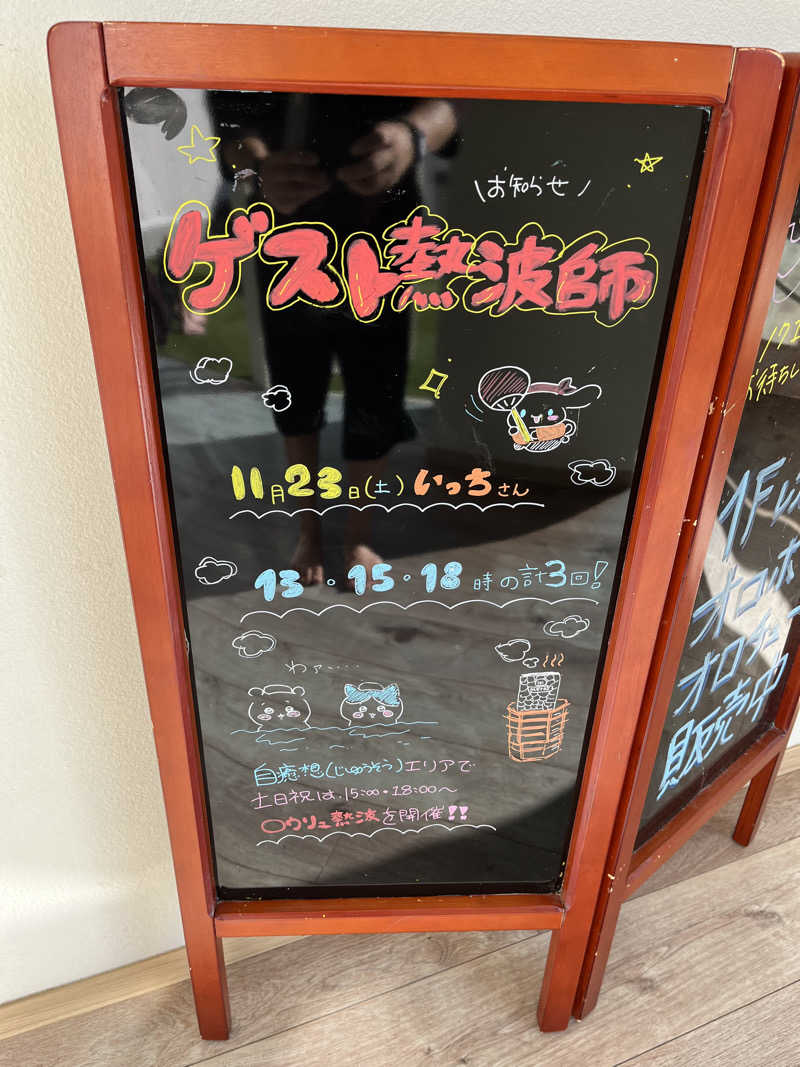 \お知らせ/
ゲスト熱波師
11月23日(土) いっちさん
13・15・18時の計3回!
わァ・・・・
自癒想(じゆうそう)エリアで
土日祝は、15:00・18:00〜
〇ウリュ熱波を開催!!
お待ちし
1Fレス
オロポ
オロチ
販売中